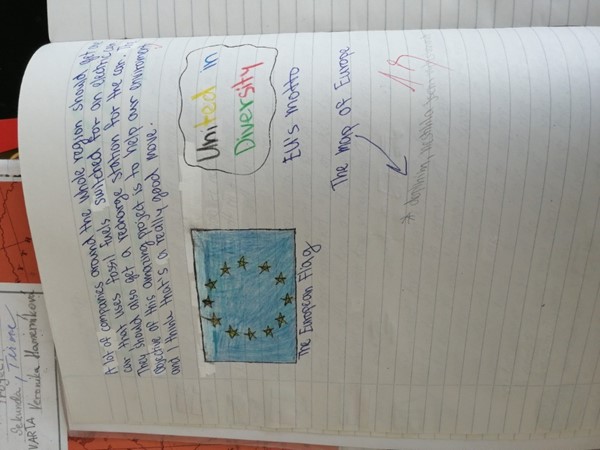 A lot of companies around the whole region should get the
car that uses fossil fuels switched for an electric car.
They should also get a recharge station for the car. The
objective of this amazing project is to help our enviroment
and I think that's a really good move.
United in
Diversity
EU's motto
The European Flag
The map of Europe
Sekunda
VARTA Veronika